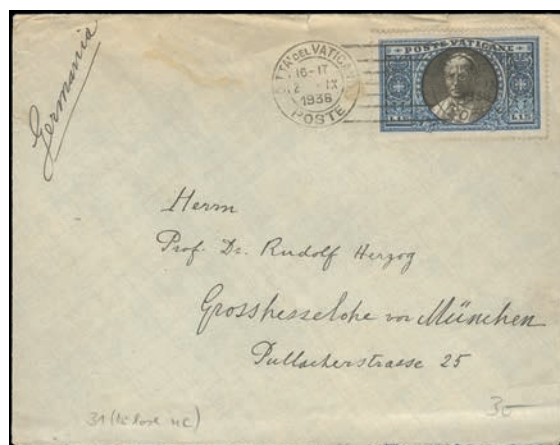 Germania
CITTA DEL VATICANO
16-17
2 IX
1938
POSTE
POSTE VATICANE
L.1.25
L.1.25
Herrn
Prof. Dr. Rudolf Herzog
Grosshesselohe vor München
Pullacherstrasse 25
30